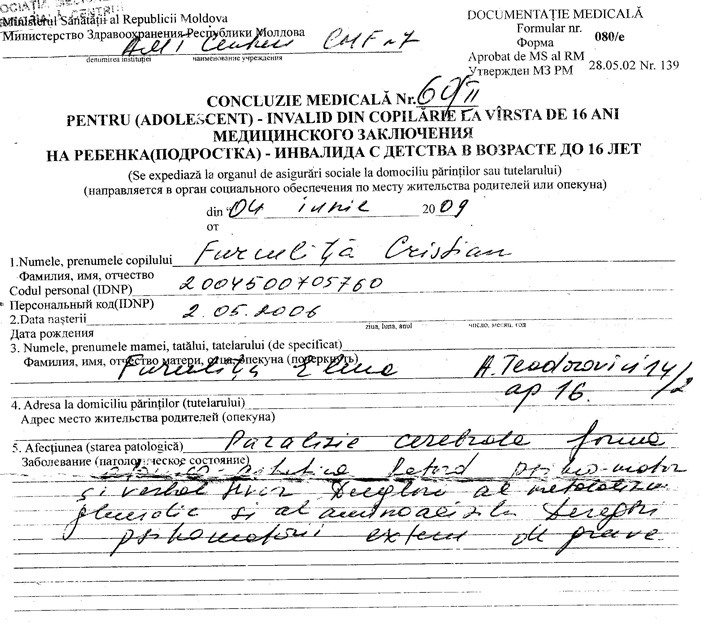 OCIAȚIA
Ministerul Sănătății al Republicii Moldova
Министерство Здравоохранения Республики Молдова
CMF n 7
denumirea instituției наименование учреждения
DOCUMENTAȚIE MEDICALĂ
Formular nr.
Форма 080/e
Aprobat de MS al RM
Утвержден МЗ РМ 28.05.02 Nr. 139
CONCLUZIE MEDICALĂ Nr. 60/II
PENTRU (ADOLESCENT) - INVALID DIN COPILĂRIE LA VÎRSTA DE 16 ANI
МЕДИЦИНСКОГО ЗАКЛЮЧЕНИЯ
НА РЕБЕНКА(ПОДРОСТКА) - ИНВАЛИДА С ДЕТСТВА В ВОЗРАСТЕ ДО 16 ЛЕТ
(Se expediază la organul de asigurări sociale la domiciliu părinților sau tutelarului)
(направляется в орган социального обеспечения по месту жительства родителей или опекуна)
din 04 iunie 2009
от
1.Numele, prenumele copilului Furculiță Cristian
Фамилия, имя, отчество
Codul personal (IDNP) 2004500705760
Персональный код(IDNP)
2.Data nașterii 2.05.2006
ziua, luna, anul число, месяц, год
Дата рождения
3. Numele, prenumele mamei, tatălui, tatelarului (de specificat)
Фамилия, имя, отчество матери, отца, опекуна (подеркнуть)
Furculiță Elena A. Teodorovici 14/2
ap 16.
4. Adresa la domiciliu părinților (tutelarului)
Адрес место жительства родителей (опекуна)
5. Afecțiunea (starea patologică) Paralizie cerebrala forma
Заболевание (патологическое состояние)
retard psiho-motor
și verbal sever Dereglări al metabolism
și al aminoacizilor Dereglări
psihomotorii extem de grave